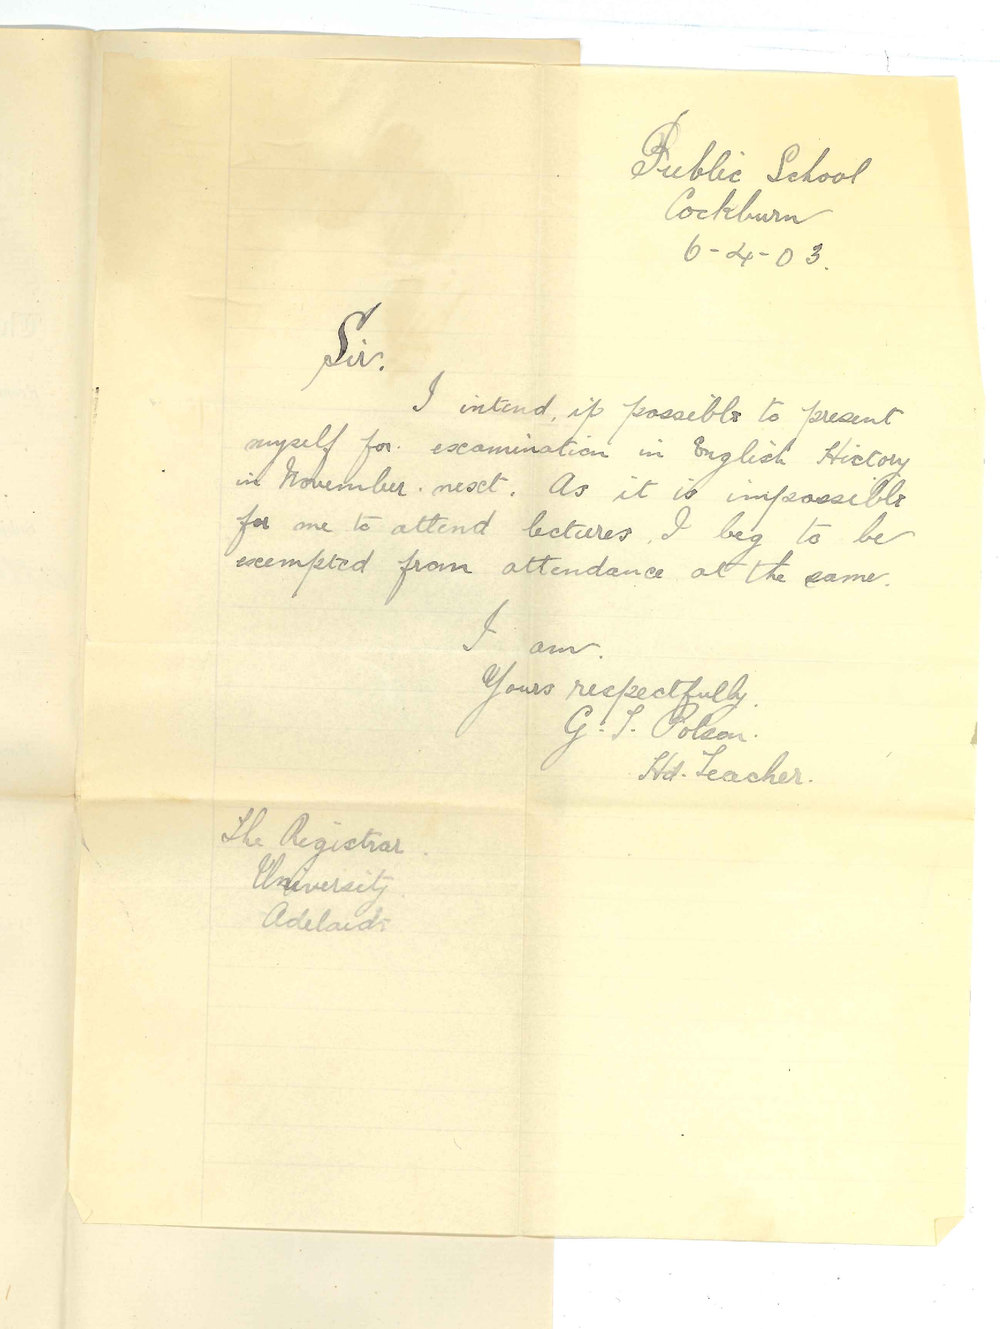 Public School
Cockburn
6-4-03.
Sir.
I intend, if possible to present
myself for examination in English History
in November next. As it is impossible
for me to attend lectures, I beg to be
exempted from attendance at the same.
I am.
Yours respectfully.
G. S. Polson.
Hd. Teacher.
The Registrar.
University
Adelaide